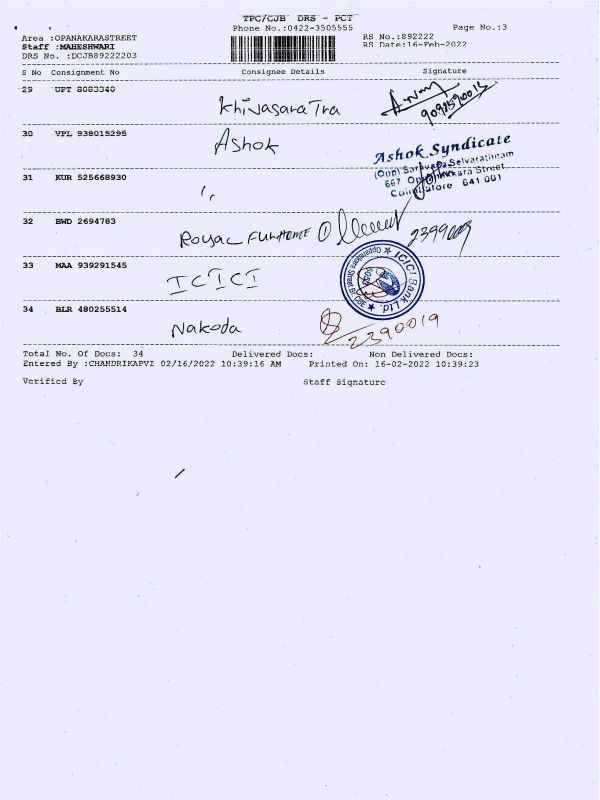 TPC/CJB DRS - PCT
Phone No.:0422-3505555
Page No.:3
Area :OPANAKARASTREET
Staff :MAHESHWARI
DRS No. :DCJB89222203
RS No.:892222
RS Date:16-Feb-2022
S No Consignment No Consignee Details Signature
29 UPT 8083340 Khivasara Tra
30 VPL 938015295 Ashok
Ashok Syndicate
(Opp) Selvarathinam
667 Street,
Coimbatore 641 001
31 KUR 525668930 ,,
32 BWD 2694783 Royal FUNHOME ①
33 MAA 939291545 ICICI
ICICI Bank Ltd.
Oppanakara Street Br CBE
34 BLR 480255514 Nakoda 2390019
Total No. Of Docs: 34 Delivered Docs: Non Delivered Docs:
Entered By :CHANDRIKAPVI 02/16/2022 10:39:16 AM Printed On: 16-02-2022 10:39:23
Verified By Staff Signature